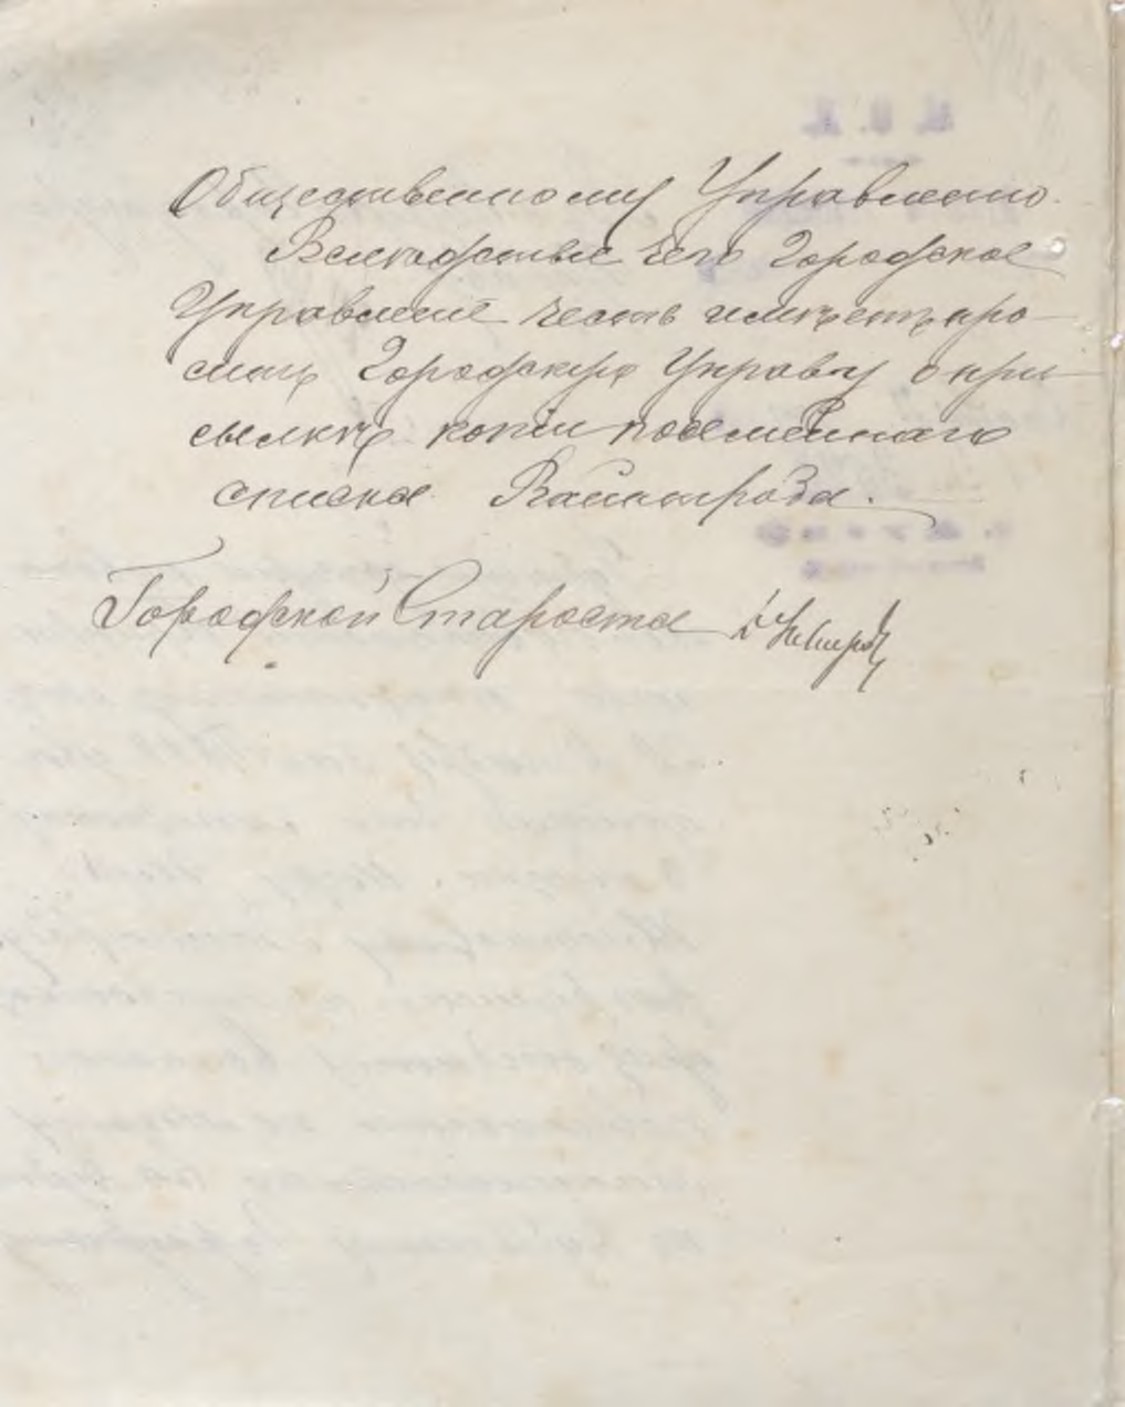 Общественному Управленію.
Вслѣдствіе чего Городское
Управленіе честь имѣетъ про
сить Городскую Управу о при
сылкѣ копіи посемейнаго
списка Вайнтроба.
Городской Староста